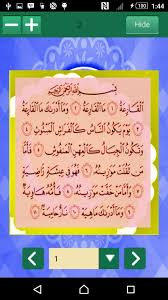 1:44
+ − Hide
بِسْمِ ٱللَّهِ ٱلرَّحْمَٰنِ ٱلرَّحِيمِ
ٱلْقَارِعَةُ ١ مَا ٱلْقَارِعَةُ ٢ وَمَآ أَدْرَىٰكَ مَا ٱلْقَارِعَةُ
٣ يَوْمَ يَكُونُ ٱلنَّاسُ كَٱلْفَرَاشِ ٱلْمَبْثُوثِ ٤
وَتَكُونُ ٱلْجِبَالُ كَٱلْعِهْنِ ٱلْمَنفُوشِ ٥ فَأَمَّا
مَن ثَقُلَتْ مَوَٰزِينُهُۥ ٦ فَهُوَ فِى عِيشَةٍ رَّاضِيَةٍ
٧ وَأَمَّا مَنْ خَفَّتْ مَوَٰزِينُهُۥ ٨ فَأُمُّهُۥ هَاوِيَةٌ
٩ وَمَآ أَدْرَىٰكَ مَا هِيَهْ ١٠ نَارٌ حَامِيَةٌۢ ١١
1